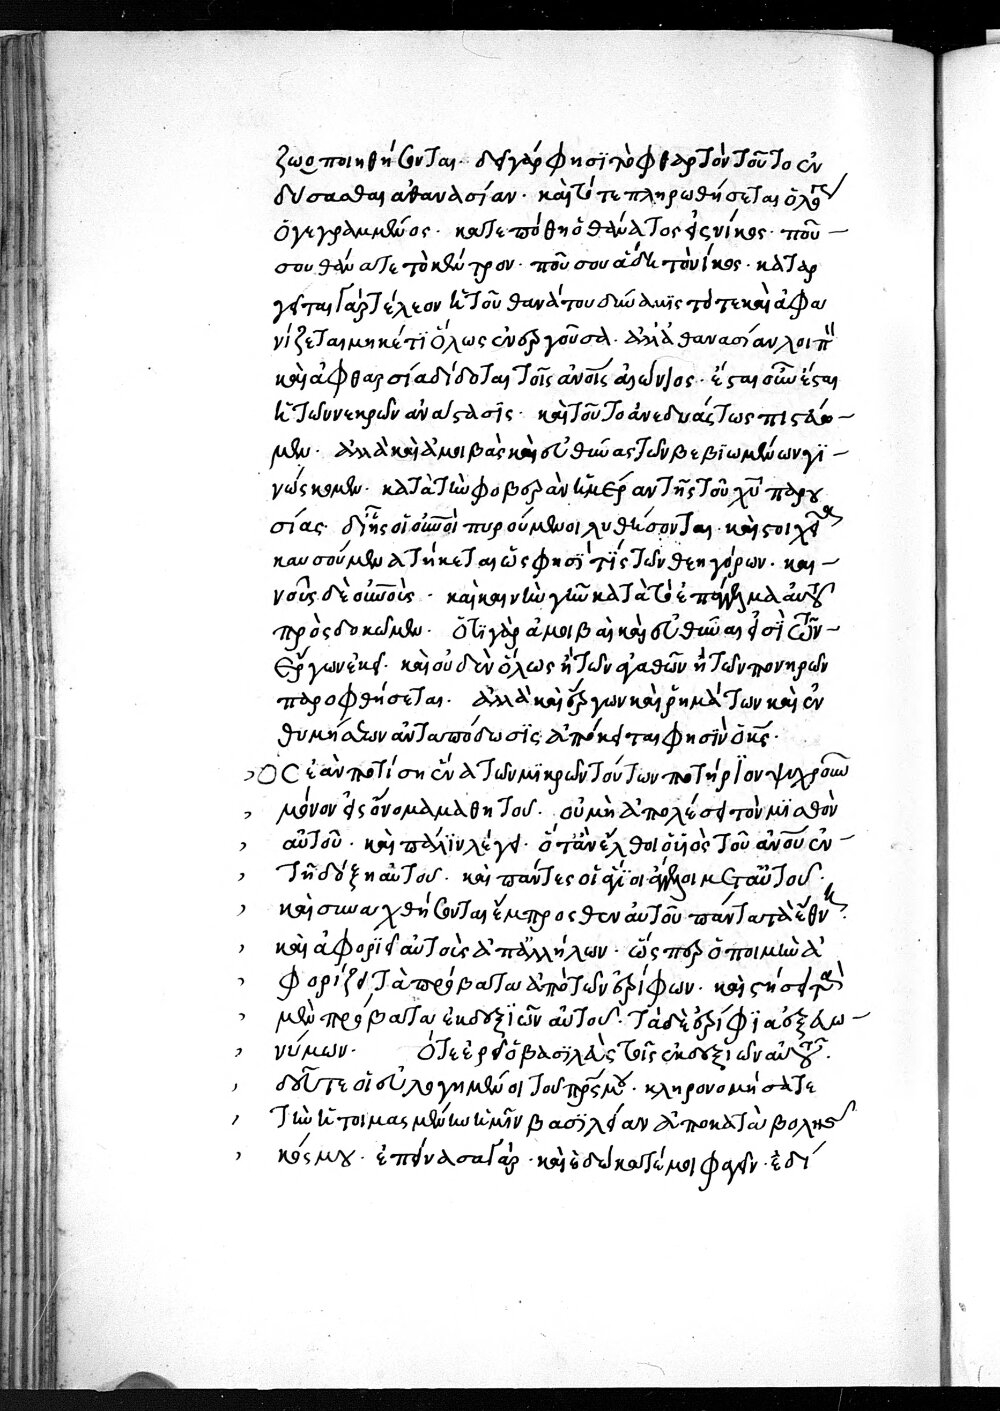 ζωοποιηθήσονται· δεῖ γάρ φησϊ τὸ φθαρτὸν τοῦτο ἐν
δύσασθαι ἀθανασίαν· καὶ τότε πληρωθήσεται ὁ λόγος
ὁ γεγραμμένος· κατεπόθη ὁ θάνατος εἰς νίκος· ποῦ
σου θάνατε τὸ κέντρον· ποῦ σου ἅδη τὸ νίκος· καταρ
γεῖται γὰρ τέλεον ἡ τοῦ θανάτου δύναμις τότε καὶ ἀφα
νίζεται μηκέτϊ ὅλως ἐνεργοῦσα· ἀλλ' ἀθανασίαν λοιπὸν
καὶ ἀφθαρσία δίδοται τοῖς ἀνοῖς αἰώνιος· ἔσται οὖν ἔσται
ἡ τῶν νεκρῶν ἀνάστασϊς· καὶ τοῦτο ἀνεδυάστως πιστεύο
μεν· ἀλλὰ καὶ ἀμοιβὰς καὶ εὐθύνας τῶν βεβϊωμένων γϊ
νώσκομεν· κατὰ τὴν φοβερὰν ἡμέραν τῆς τοῦ χῦ παρου
σίας· δι' ἧς οἱ οὐνοὶ πυρούμενοι λυθήσονται· καὶ στοιχεῖα
καυσούμενα τήκεται ὥς φησϊ τϊς τῶν θεηγόρων· και
νοὺς δὲ οὐνοὺς· καὶ καινὴν γῆν κατὰ τὸ ἐπάγγελμα αὐτοῦ
προσδοκῶμεν· ὅτϊ γὰρ ἀμοιβαὶ καὶ εὐθῦναι εἰσϊ τῶν
ἔργων ἐκεῖ· καὶ οὐδὲν ὅλως ἢ τῶν ἀγαθῶν ἢ τῶν πονηρῶν
παροφθήσεται· ἀλλὰ καὶ ἔργων καὶ ῥημάτων καὶ ἐν
θυμήσεων ἀνταπόδωσϊς ἀπόκειται φησϊν ὁ κς·
ὃς ἐὰν ποτίση ἕνα τῶν μϊκρῶν τούτων ποτήρϊον ψυχροῦ
μόνον εἰς ὄνομα μαθητοῦ· οὐ μὴ ἀπολέσει τὸν μϊσθὸν
αὐτοῦ· καὶ πάλϊν λέγει· ὅταν ἔλθοι ὁ υἱὸς τοῦ ἀνοῦ ἐν
τῆ δόξη αὐτοῦ· καὶ πάντες οἱ ἅγϊοι ἄγγελοι μετ' αὐτοῦ·
καὶ συναχθήσονται ἔμπροσθεν αὐτοῦ πάντα τὰ ἔθνη·
καὶ ἀφορϊεῖ αὐτοὺς ἀπ' ἀλλήλων· ὥσπερ ὁ ποιμὴν ἀ
φορίζει τὰ πρόβατα ἀπὸ τῶν ἐρίφων· καὶ στήσει τὰ
μὲν πρόβατα ἐκ δεξϊῶν αὐτοῦ· τὰ δὲ ἐρίφϊα ἐξ εὐω
νύμων· ὅτε ἐρεῖ ὁ βασϊλεὺς τοῖς ἐκ δεξϊῶν αὐτοῦ·
δεῦτε οἱ εὐλογημένοι τοῦ πρς μου· κληρονομήσατε
τὴν ἡτοιμασμένην ὑμῖν βασϊλείαν ἀπὸ καταβολῆς
κόσμου· ἐπείνασα γάρ· καὶ ἐδώκατέ μοι φαγεῖν· ἐδί